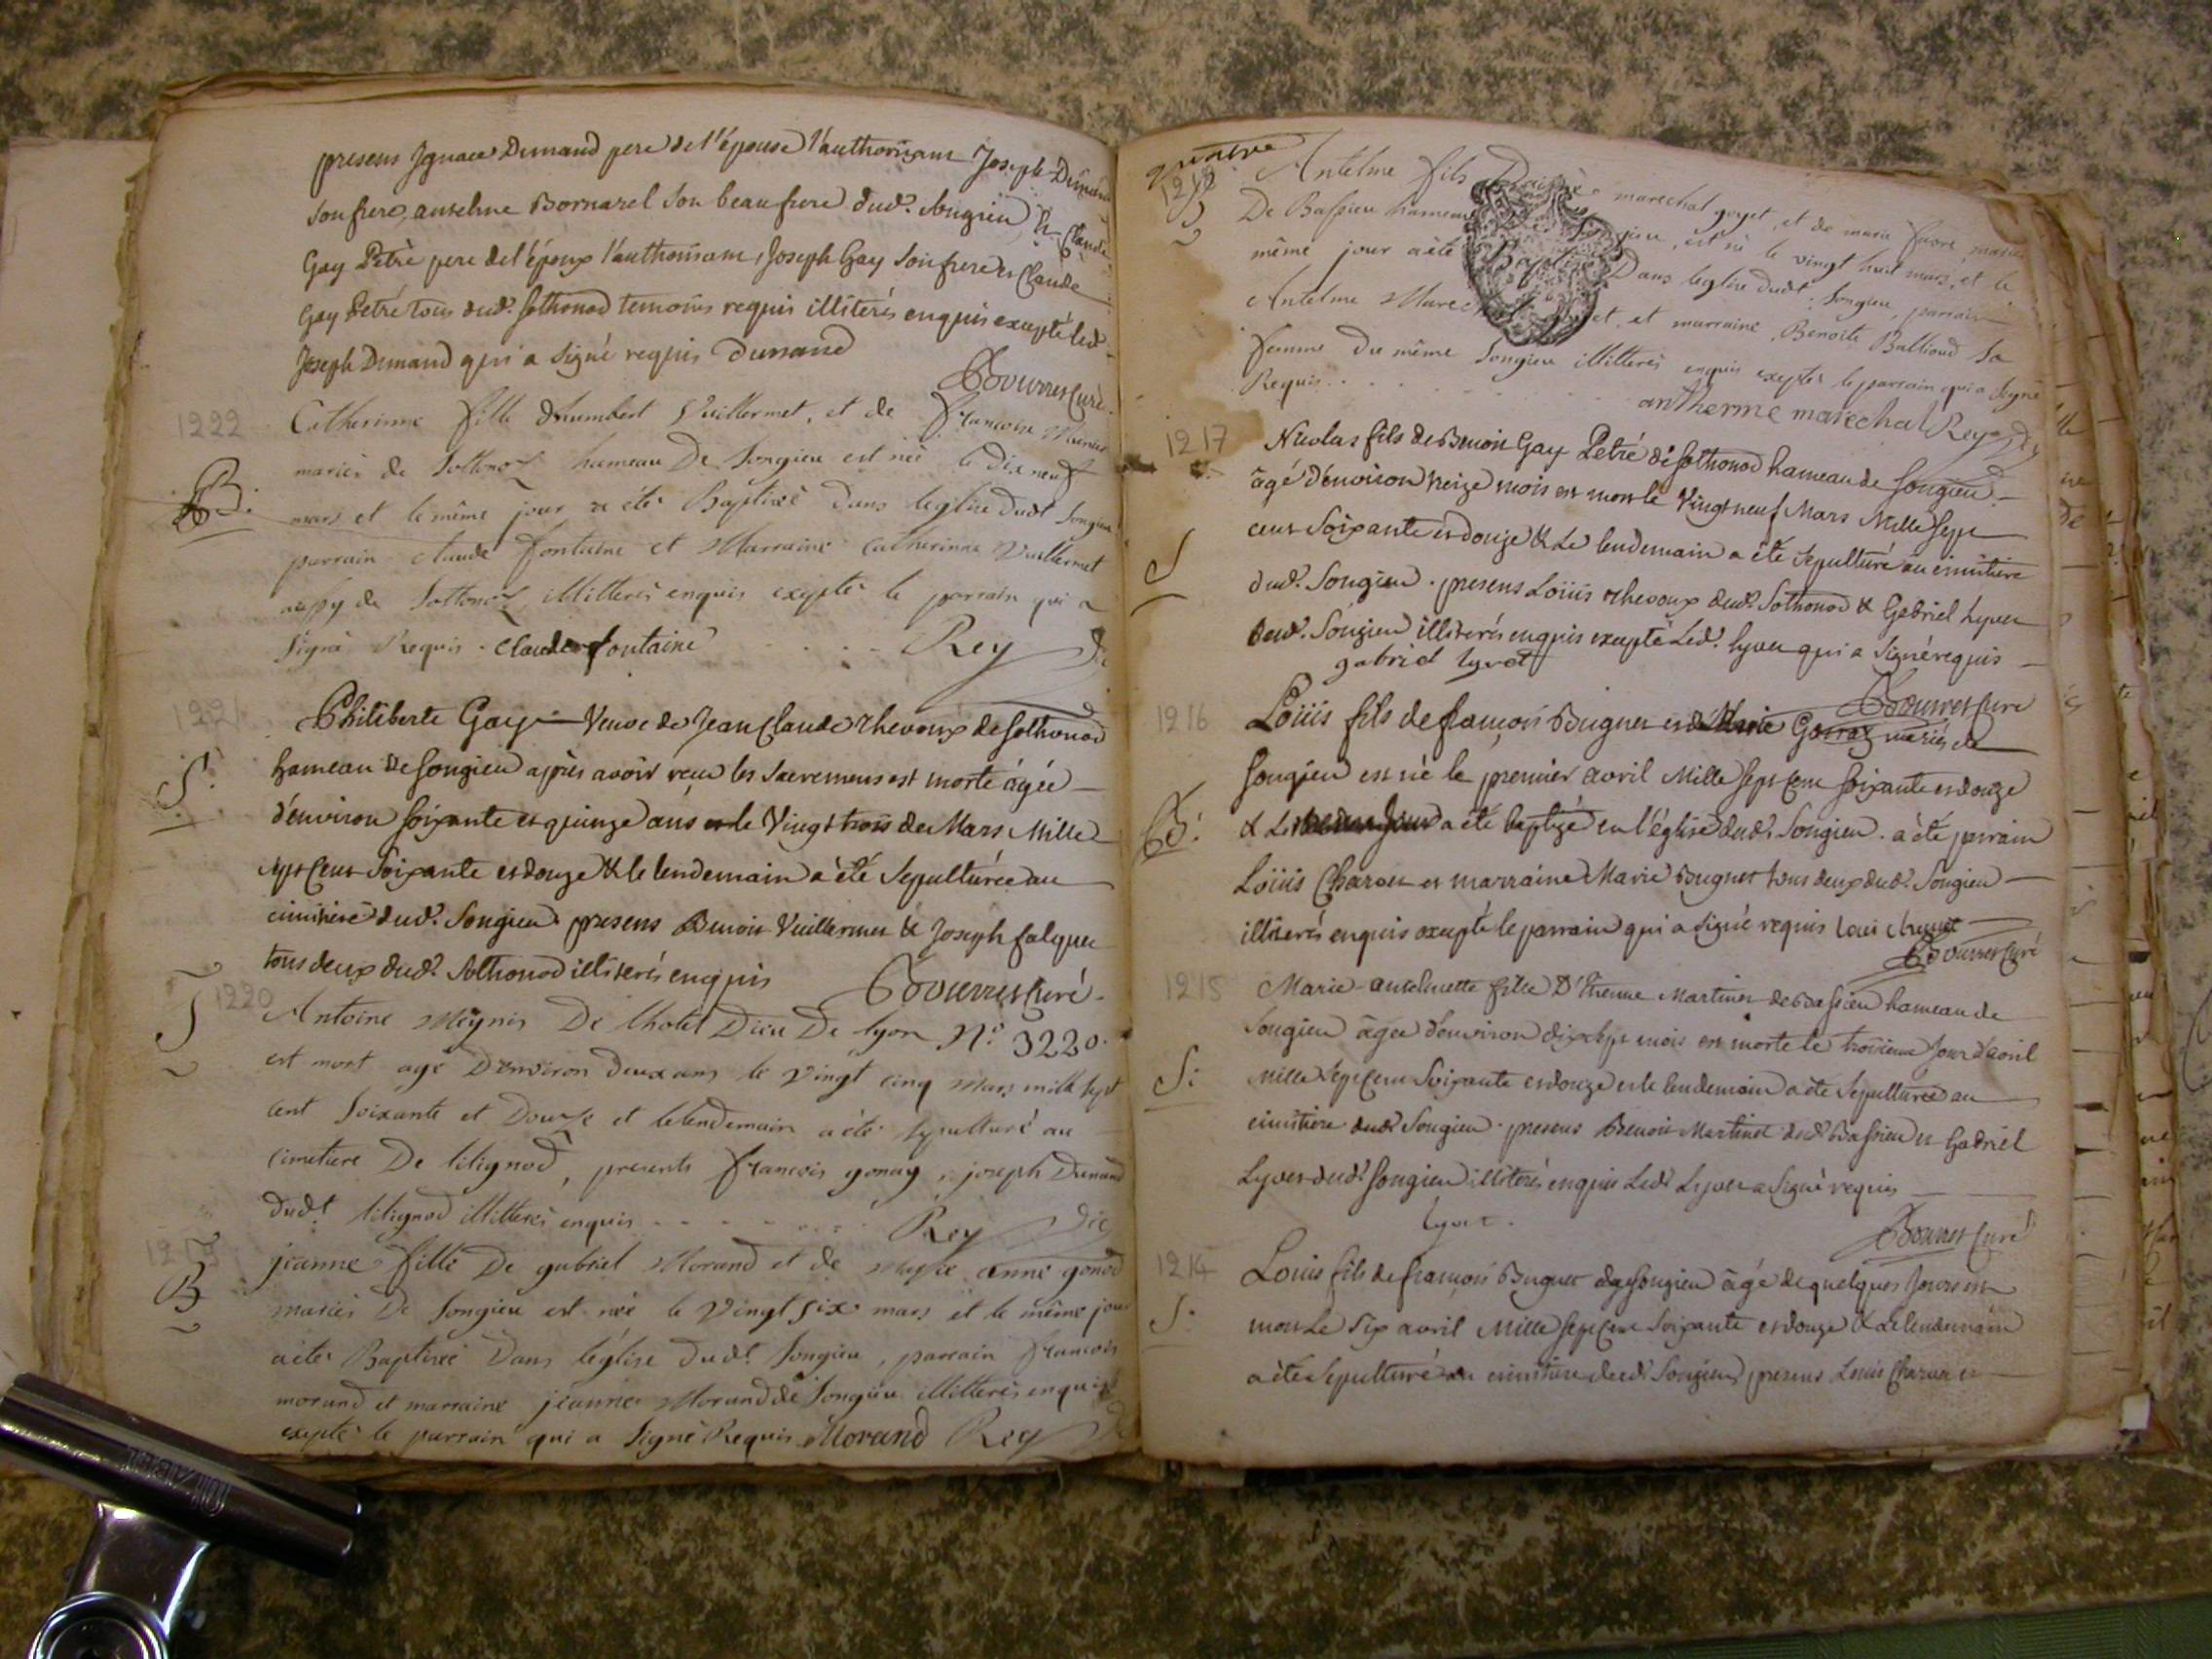 presens Ignace Dumand pere de l'épouse l'authorisant Joseph Dumand
son frere, anselme Bornarel son beau frere dud.t Songieu, & Claude
Gay Petré pere de l'époux l'authorisant, Joseph Gay son frere et Claude
Gay Petré tous dud.t Sothonod temoins requis illiterés enquis excepté led.
Joseph Dumand qui a signé requis Dunand
Bouvret Curé
1222
Catherinne fille d'humbert Vuillermet, et de francoise
mariés de Sottonod hameau De Songieu est née le dix neuf
B.
mars et le même jour a été Baptisée dans leglise dudt Songieu
parrain claude fontaine et Marraine catherinne Vuillermet
de Sottonod, illitterés enquis exepté le parrain qui a
signé Requis. claude fontaine Rey
1221
Philiberte Gay Veuve de Jean Claude Thevoux de Sothonod
hameau de Songieu après avoir reçu les sacremens est morte âgée
S.
d'environ soixante et quinze ans le Vingt trois de Mars Mille
sept cent soixante et douze & le lendemain a été Sepulturée au
cimitiere dud.t Songieu presens Benoit Vuillermet & Joseph falquet
tous deux dud.t Sothonod illiterés enquis Bouvret Curé
1220
S
Antoine Meynis De lhotel Dieu De lyon N.o 3220.
est mort agé D'environ deux ans le vingt cinq Mars mille sept
cent soixante et Douze et le lendemain a été sepulturé au
cimetiere De lilignod, presents francois gonay, joseph Dunand
dudt lilignod illitterés enquis Rey
1219
B
jeanne fille De gabriel Morand et de anne gonod
mariés De Songieu est née le vingt six mars et le même jour
a été Baptisée Dans l'église Dudt Songieu, parrain francois
morand et marraine jeanne Morand de Songieu illitterés enquis
exepté le parrain qui a signé Requis Morand Rey
1218
Antelme fils marechal goyet, et de marie favre mariés
B
De Bassieu hameau Songieu, est né le vingt huit mars, et le
même jour a été Baptisé Dans leglise dudt Songieu, parrain
Antelme Marechal et marraine Benoite Balliod sa
femme Du même Songieu illitterés enquis exepté le parrain qui a signé
Requis
antherme marechal Rey
1217
Nicolas fils de Benoit Gay Petré de Sothonod hameau de Songieu
âgé d'environ treize mois est mort le Vingt neuf Mars Mille sept
S
cent soixante et douze & Le lendemain a été Sepulturé au cimitiere
dud.t Songieu. presens Loüis Thevoux dud.t Sothonod & Gabriel Lyvet
dud.t Songieu illiterés enquis excepté Led. Lyvet qui a signé requis
gabriel lyvet
Bouvret Curé
1216
Loüis fils de françois Bugnet et de Marie Gorraz mariés de
Songieu est né le premier avril Mille sept cent soixante et douze
B.
& Le a été baptizé en l'église dud.t Songieu. a été parrain
Loüis Charvet et marraine Marie Bugnet tous deux dud.t Songieu
illiterés enquis excepté le parrain qui a signé requis Loui
Bouvret Curé
1215
Marie anselmette fille D'Etienne Martinet de Bassieu hameau de
Songieu âgée d'environ dix sept mois est morte le troisieme Jour d'avril
S.
Mille sept cent soixante et douze et le lendemain a été Sepulturée au
cimitiere dud.t Songieu. presens Benoit Martinet dud.t Bassieu et Gabriel
Lyvet dud.t Songieu illiterés enquis Led. Lyvet a signé requis
lyvet.
Bouvret Curé
1214
Louis fils de françois Bugnet de Songieu âgé de quelques Jours est
S.
mort Le six avril Mille sept cent soixante et douze & Le lendemain
a été Sepulturé au cimitiere dud.t Songieu presens Louis Charvet et